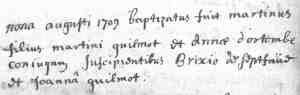 nona augusti 1709 baptizatus fuit martinus
filius martini quilmot et Annæ d'ortembe
coniugum, suscipientibus Brixio de septfau
et Joannâ quilmot.